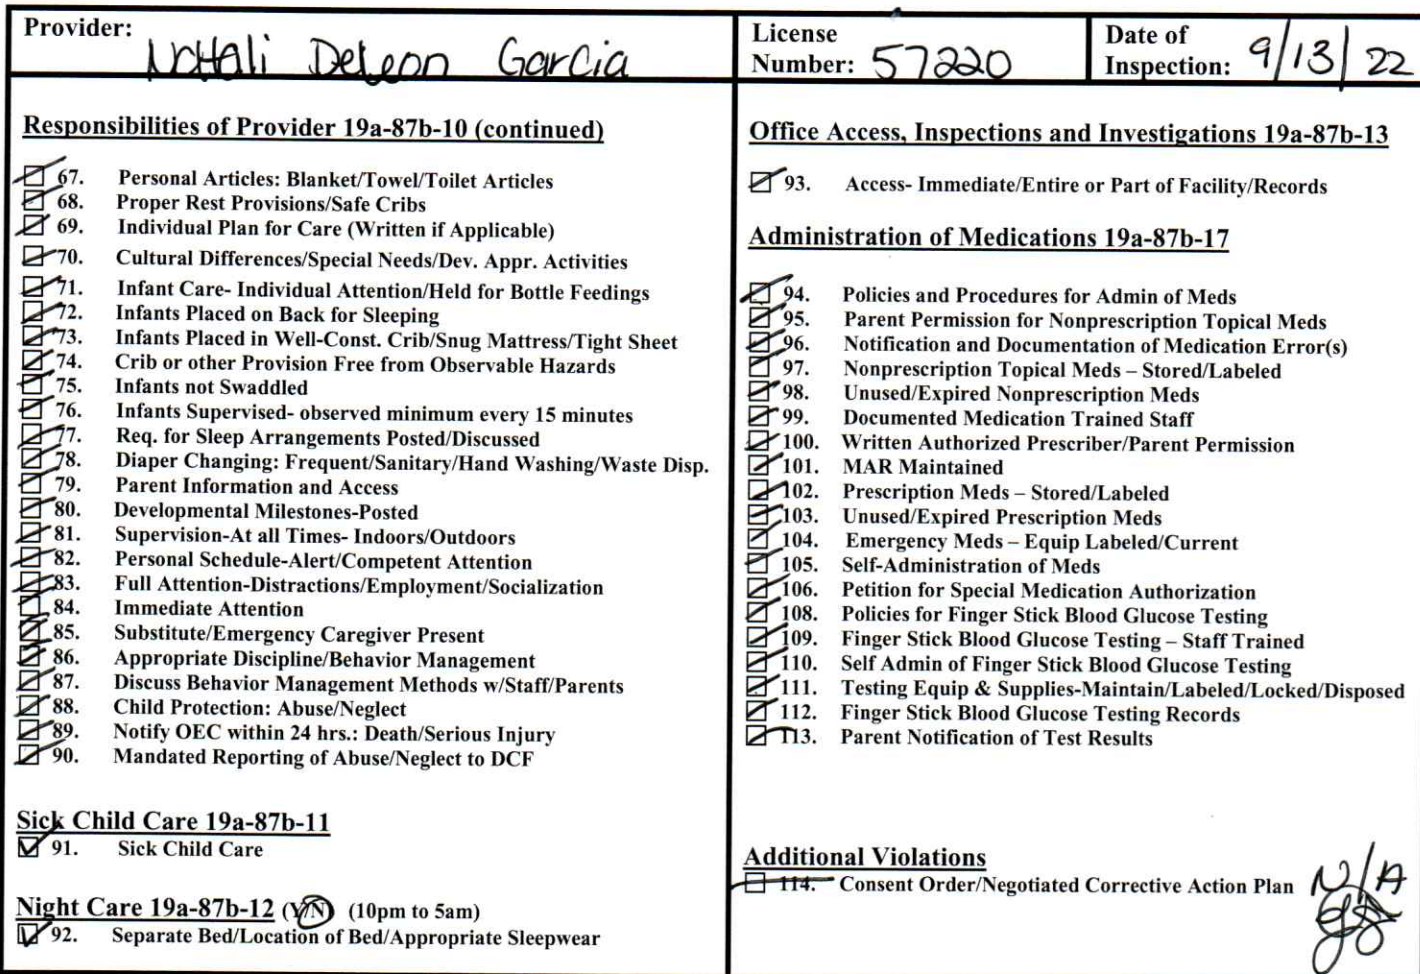 Provider: Nathali DeLeon Garcia
License Number: 57220
Date of Inspection: 9/13/22
Responsibilities of Provider 19a-87b-10 (continued)
67. Personal Articles: Blanket/Towel/Toilet Articles
68. Proper Rest Provisions/Safe Cribs
69. Individual Plan for Care (Written if Applicable)
70. Cultural Differences/Special Needs/Dev. Appr. Activities
71. Infant Care- Individual Attention/Held for Bottle Feedings
72. Infants Placed on Back for Sleeping
73. Infants Placed in Well-Const. Crib/Snug Mattress/Tight Sheet
74. Crib or other Provision Free from Observable Hazards
75. Infants not Swaddled
76. Infants Supervised- observed minimum every 15 minutes
77. Req. for Sleep Arrangements Posted/Discussed
78. Diaper Changing: Frequent/Sanitary/Hand Washing/Waste Disp.
79. Parent Information and Access
80. Developmental Milestones-Posted
81. Supervision-At all Times- Indoors/Outdoors
82. Personal Schedule-Alert/Competent Attention
83. Full Attention-Distractions/Employment/Socialization
84. Immediate Attention
85. Substitute/Emergency Caregiver Present
86. Appropriate Discipline/Behavior Management
87. Discuss Behavior Management Methods w/Staff/Parents
88. Child Protection: Abuse/Neglect
89. Notify OEC within 24 hrs.: Death/Serious Injury
90. Mandated Reporting of Abuse/Neglect to DCF
Sick Child Care 19a-87b-11
91. Sick Child Care
Night Care 19a-87b-12 (Y/N) (10pm to 5am)
92. Separate Bed/Location of Bed/Appropriate Sleepwear
Office Access, Inspections and Investigations 19a-87b-13
93. Access- Immediate/Entire or Part of Facility/Records
Administration of Medications 19a-87b-17
94. Policies and Procedures for Admin of Meds
95. Parent Permission for Nonprescription Topical Meds
96. Notification and Documentation of Medication Error(s)
97. Nonprescription Topical Meds – Stored/Labeled
98. Unused/Expired Nonprescription Meds
99. Documented Medication Trained Staff
100. Written Authorized Prescriber/Parent Permission
101. MAR Maintained
102. Prescription Meds – Stored/Labeled
103. Unused/Expired Prescription Meds
104. Emergency Meds – Equip Labeled/Current
105. Self-Administration of Meds
106. Petition for Special Medication Authorization
108. Policies for Finger Stick Blood Glucose Testing
109. Finger Stick Blood Glucose Testing – Staff Trained
110. Self Admin of Finger Stick Blood Glucose Testing
111. Testing Equip & Supplies-Maintain/Labeled/Locked/Disposed
112. Finger Stick Blood Glucose Testing Records
113. Parent Notification of Test Results
Additional Violations
114. Consent Order/Negotiated Corrective Action Plan N/A